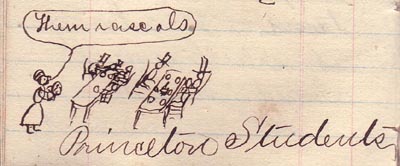 Them rascals
Princeton Students